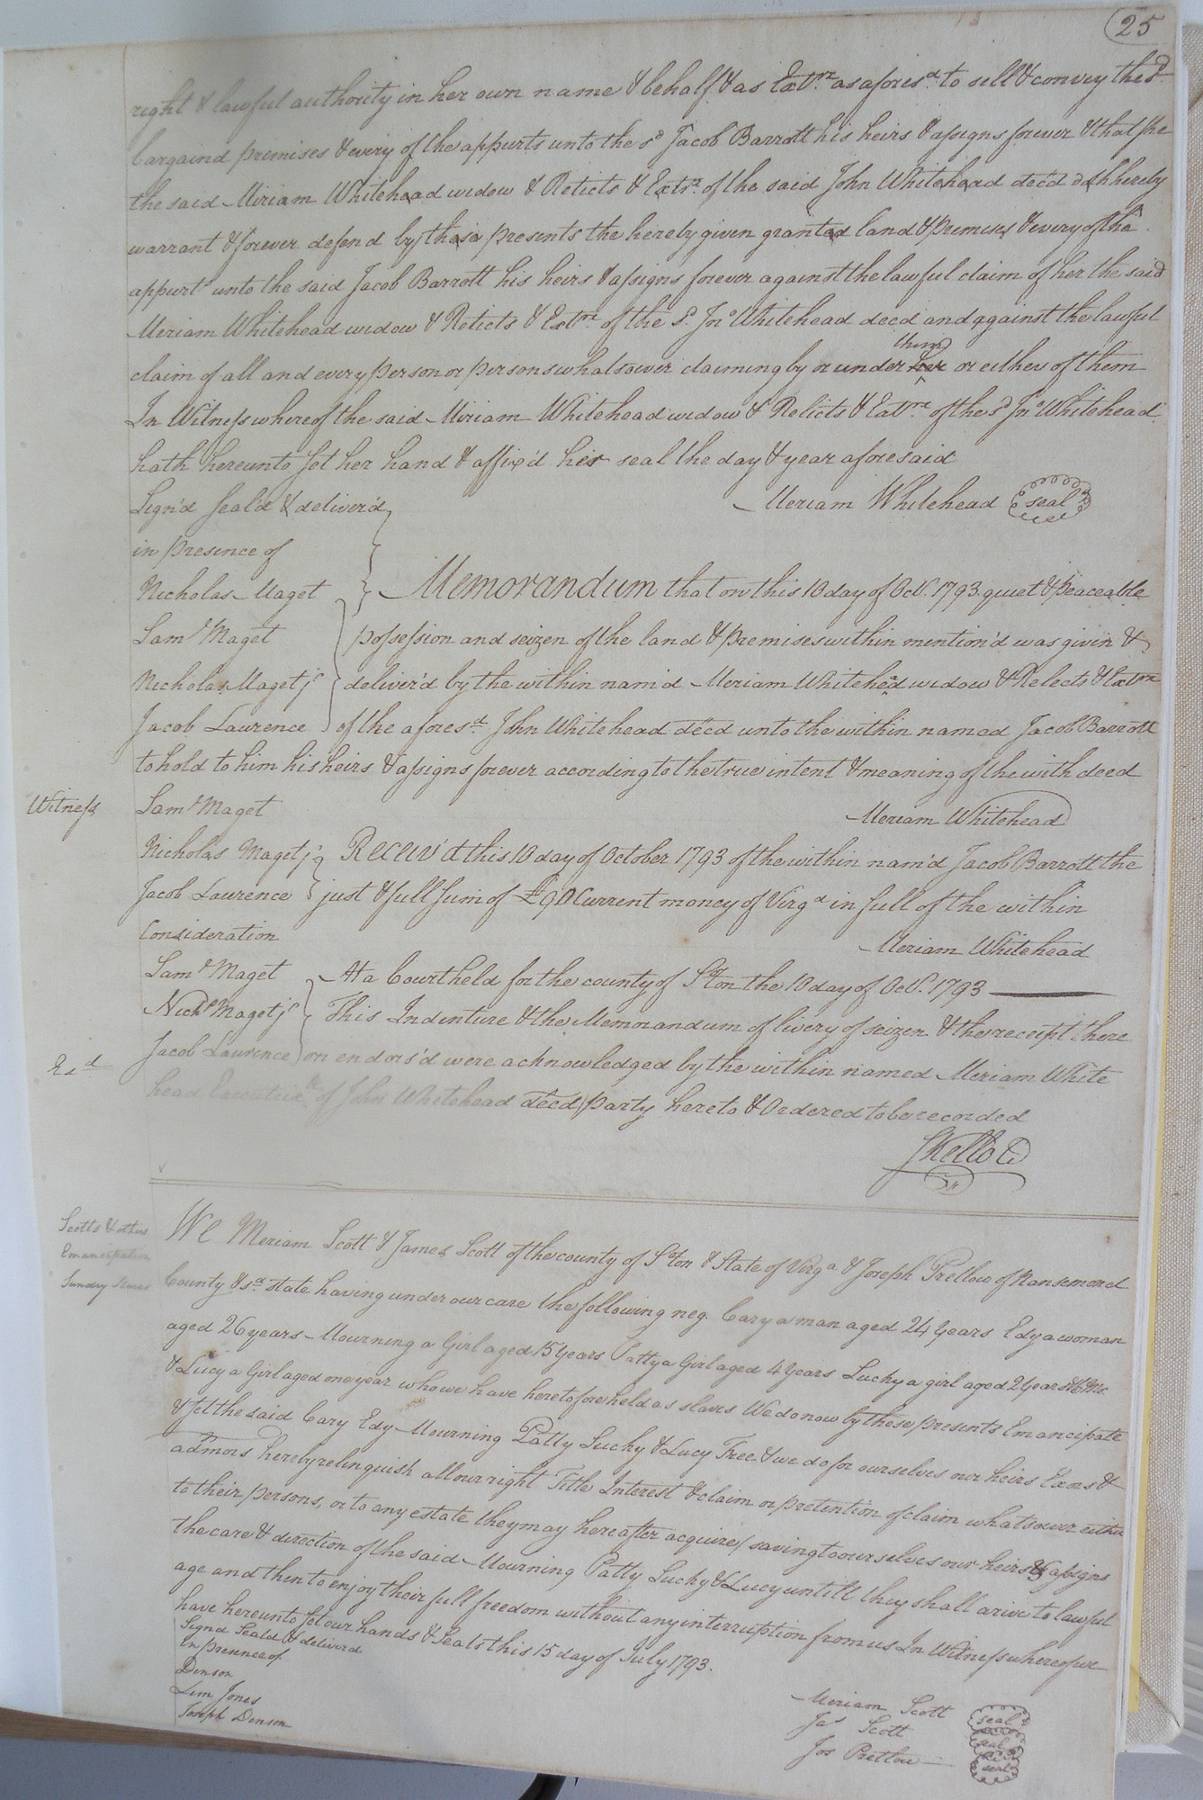 25
right & lawful authority in her own name & behalf & as Extrx as aforesd to sell & convey the sd
bargaind premises & every of the appurts unto the sd Jacob Barrott his heirs & assigns forever & that she
the said Miriam Whitehead widow & Relicts & Extrx of the said John Whitehead dec'd doth hereby
warrant & forever defend by these presents the hereby given granted land & premises & every of the
appurts unto the said Jacob Barrott his heirs & assigns forever against the lawful claim of her the said
Miriam Whitehead widow & Relicts & Extrx of the sd Jno Whitehead decd and against the lawful
claim of all and every person or persons whatsoever claiming by or under her them or either of them
In Witness whereof the said Miriam Whitehead widow & Relicts & Extrx of the sd Jno Whitehead
hath hereunto set her hand & affix'd her seal the day & year aforesaid
Sign'd seal'd & deliver'd
Meriam Whitehead seal
in presence of
Nicholas Maget
Memorandum that on this 10 day of Oct. 1793 quiet & peaceable
Saml Maget possession and seizen of the land & premises within mention'd was given &
Nicholas Maget jr deliver'd by the within nam'd Meriam Whitehead widow & Relects & Extrx
Jacob Laurence of the aforesd John Whitehead decd unto the within named Jacob Barrott
to hold to him his heirs & assigns forever according to the true intent & meaning of the with deed
Witness Saml Maget
Meriam Whitehead
Nicholas Maget jr Receiv'd this 10 day of October 1793 of the within nam'd Jacob Barrott the
Jacob Laurence just & full sum of £90 Current money of Virga in full of the within
Consideration
Meriam Whitehead
Saml Maget At a Court held for the county of Sºton the 10 day of Oct. 1793
Nichs Maget jr This Indenture & the Memorandum of livery of seizen & the receipt there
Jacob Laurence on endors'd were acknowledged by the within named Meriam White
head Executrix of John Whitehead decd party hereto & Ordered to be recorded
Scotts & others
Emancipation
Sundry Slaves
We Meriam Scott & James Scott of the county of Sºton & State of Virga & Joseph Pretlow of Nansemond
County & sd state having under our care the following neg. Cary a man aged 24 years Edy a woman
aged 26 years Mourning a Girl aged 15 years Patty a Girl aged 4 years Lucky a girl aged 2 years
& Lucy a Girl aged one year who we have heretofore held as slaves We do now by these presents Emancipate
& set the said Cary Edy Mourning Patty Lucky & Lucy Free & we do for ourselves our heirs Exors &
admors hereby relinquish all our right Title Interest & claim or pretention of claim whatsoever either
to their persons, or to any estate they may hereafter acquire, saving to ourselves our heirs & assigns
the care & direction of the said Mourning Patty Lucky & Lucy untill they shall arive to lawful
age and then to enjoy their full freedom without any interruption from us In Witness whereof we
have hereunto set our hands & Seals this 15 day of July 1793.
Signd Seald & deliverd
In presence of
Denson
Lem Jones
Joseph Denson
Meriam Scott seal
Jas Scott seal
Jos Pretlow seal